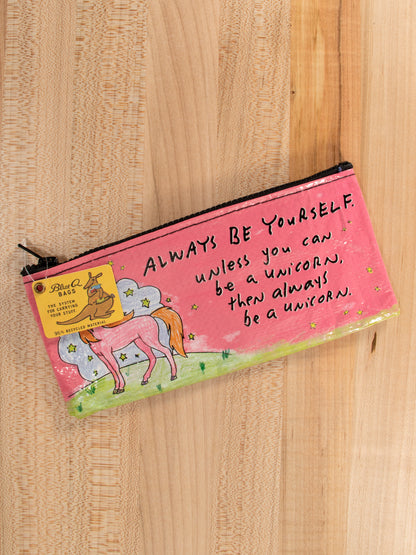 ALWAYS BE YOURSELF.
unless you can
be a UNICORN,
then always
be a UNICORN.
Blue Q
BAGS
THE SYSTEM
FOR CARRYING
YOUR STUFF
95% RECYCLED MATERIAL